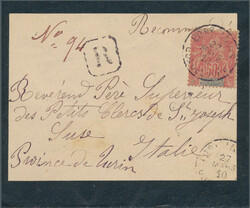 Recommandé
No 94
R
Révérend Père Supérieur
des Petits Clercs de St Joseph
Suse
Italie
Province de Turin
27
10